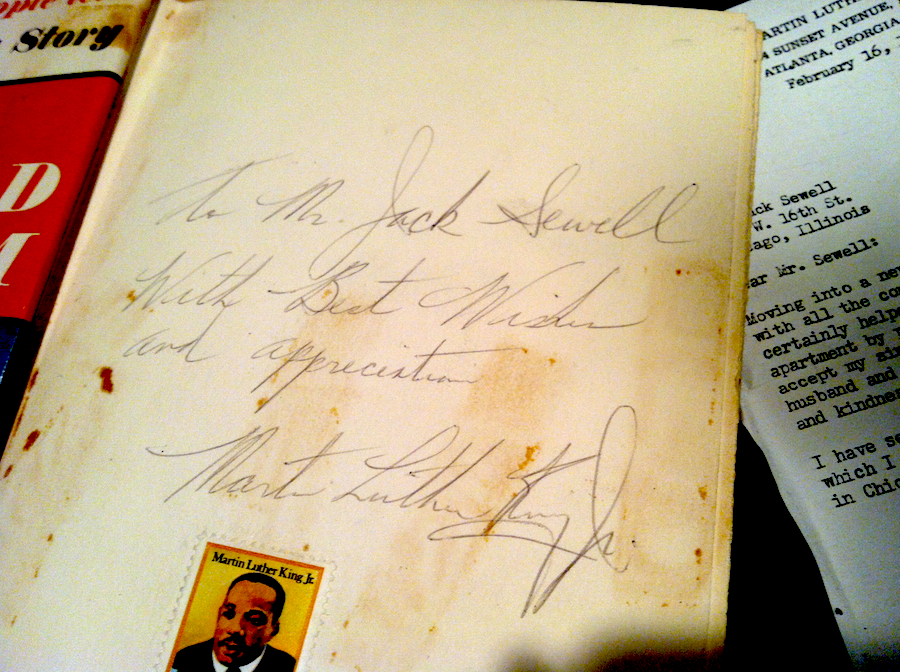 Story
D
M
To Mr. Jack Sewell
With Best Wishes
and appreciation
Martin Luther King Jr.
Martin Luther King Jr.
MARTIN LUTHER
SUNSET AVENUE,
ATLANTA, GEORGIA
February 16,
ck Sewell
W. 16th St.
ago, Illinois
ar Mr. Sewell:
Moving into a new
with all the
certainly helpe
apartment by
accept my
husband and
and kindnes
I have se
which I
in Chic